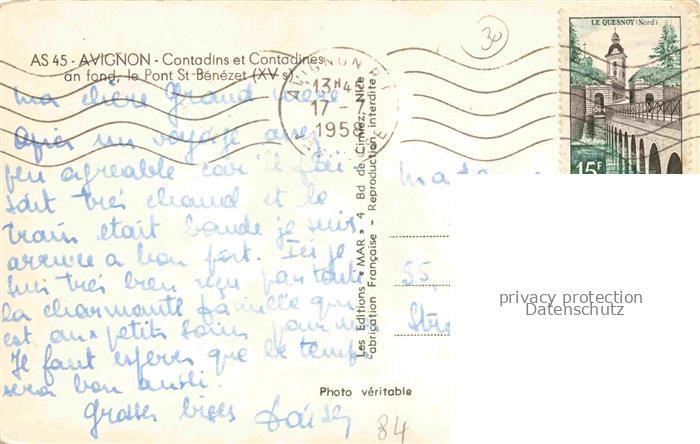 AS 45 - AVIGNON - Contadins et Contadines
an fond, le Pont St-Bénézet (XVe s)
30
AVIGNON
13H45
17 - 7
1958
LE QUESNOY (Nord)
15F
ma chère Grand mère
Après un voyage assez
peu agreable car il fai
sait très chaud et le
train etait bondé je suis
arrivée a bon port. Ici je
suis très bien reçu par toute
la charmante famille qui
est aux petits soins pour moi
Il faut esperer que le temps
sera bon aussi.
Grosses bises
84
Les Editions « MAR » 4 Bd de Cimiez, Nice
Fabrication Française - Reproduction interdite
Photo véritable
55
privacy protection
Datenschutz